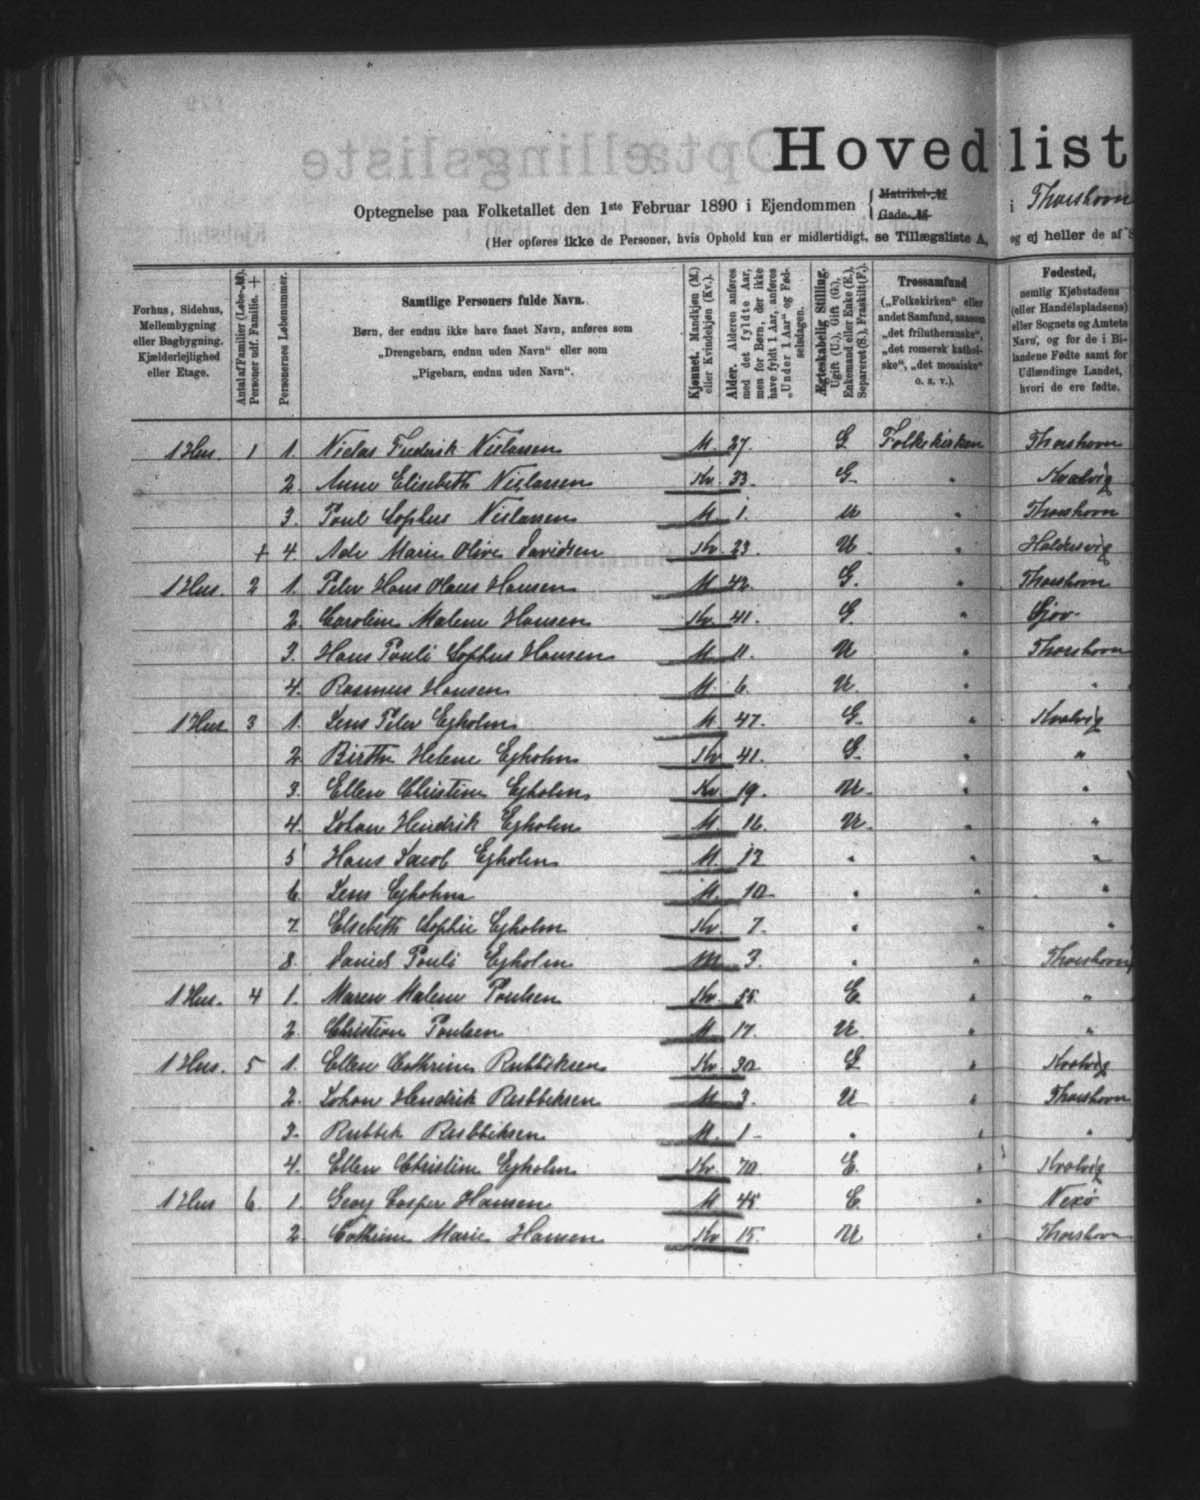 Hovedlist
Optegnelse paa Folketallet den 1ste Februar 1890 i Ejendommen { Matrikel-№ Gade-№ i Thorshavn
(Her opføres ikke de Personer, hvis Ophold kun er midlertidigt, se Tillægsliste A, og ej heller de af
Forhus, Sidehus, Mellembygning eller Bagbygning. Kjælderlejlighed eller Etage.
Antal af Familier (Løbe-№). Personer udf. Familie. +
Personernes Løbenummer.
Samtlige Personers fulde Navn.
Børn, der endnu ikke have faaet Navn, anføres som „Drengebarn, endnu uden Navn“ eller som „Pigebarn, endnu uden Navn“.
Kjønnet. Mandkjøn (M.) eller Kvindekjøn (Kv.).
Alder. Alderen anføres med det fyldte Aar, men for Børn, der ikke have fyldt 1 Aar, anføres „Under 1 Aar“ og Fødselsdagen.
Ægteskabelig Stilling. Ugift (U.), Gift (G.), Enkemand eller Enke (E.), Separeret (S.), Fraskilt (F.).
Trossamfund („Folkekirken“ eller andet Samfund, saasom „det frilutheranske“, „det romersk katholske“, „det mosaiske“ o. s. v.).
Fødested, nemlig Kjøbstadens (eller Handelspladsens) eller Sognets og Amtets Navn, og for de i Bilandene Fødte samt for Udlændinge Landet, hvori de ere fødte.
1 Hus. 1 1. Niclas Frederik Niclassen M. 27. G Folkekirken Thorshavn
2. Anne Elisebeth Niclassen Kv. 33. G. " Kvalvig
3. Poul Sophus Niclassen M. 1. U " Thorshavn
+ 4. Ade Marie Olive Davidsen Kv. 23. U. " Haldersvig
1 Hus. 2 1. Peter Hans Claus Hansen M. 42. G. " Thorshavn
2. Caroline Malene Hansen Kv. 41. G. "
3. Hans Pouli Sophus Hansen M. 11. U " Thorshavn
4. Rasmus Hansen M. 6. U. " "
1 Hus 3 1. Jens Peter Egholm M. 47. G. " Kvalvig
2. Birthe Helene Egholm Kv 41. G. " "
3. Ellen Christine Egholm Kv. 19. U. " "
4. Johan Hendrik Egholm M. 16. U. " "
5 Hans Jacob Egholm M. 13 " " "
6. Jens Egholm M. 10 " " "
7. Elsebeth Sophie Egholm Kv. 7. " " "
8. Daniel Pouli Egholm M. 3. " " Thorshavn
1 Hus. 4 1. Maren Malene Poulsen Kv. 55. E. " "
2. Christian Poulsen M. 17. U. " "
1 Hus. 5 1. Ellen Cathrine Rubbeksen Kv. 30. G " Kvalvig
2. Johan Hendrik Rubbeksen M. 3. U " Thorshavn
3. Rubbek Rubbeksen M. 1 " " "
4. Ellen Christine Egholm Kv. 70 E. " Kvalvig
1 Hus 6 1. Georg Casper Hansen M 45 E. " Nexø
2. Cathrine Marie Hansen Kv 15. U " Thorshavn